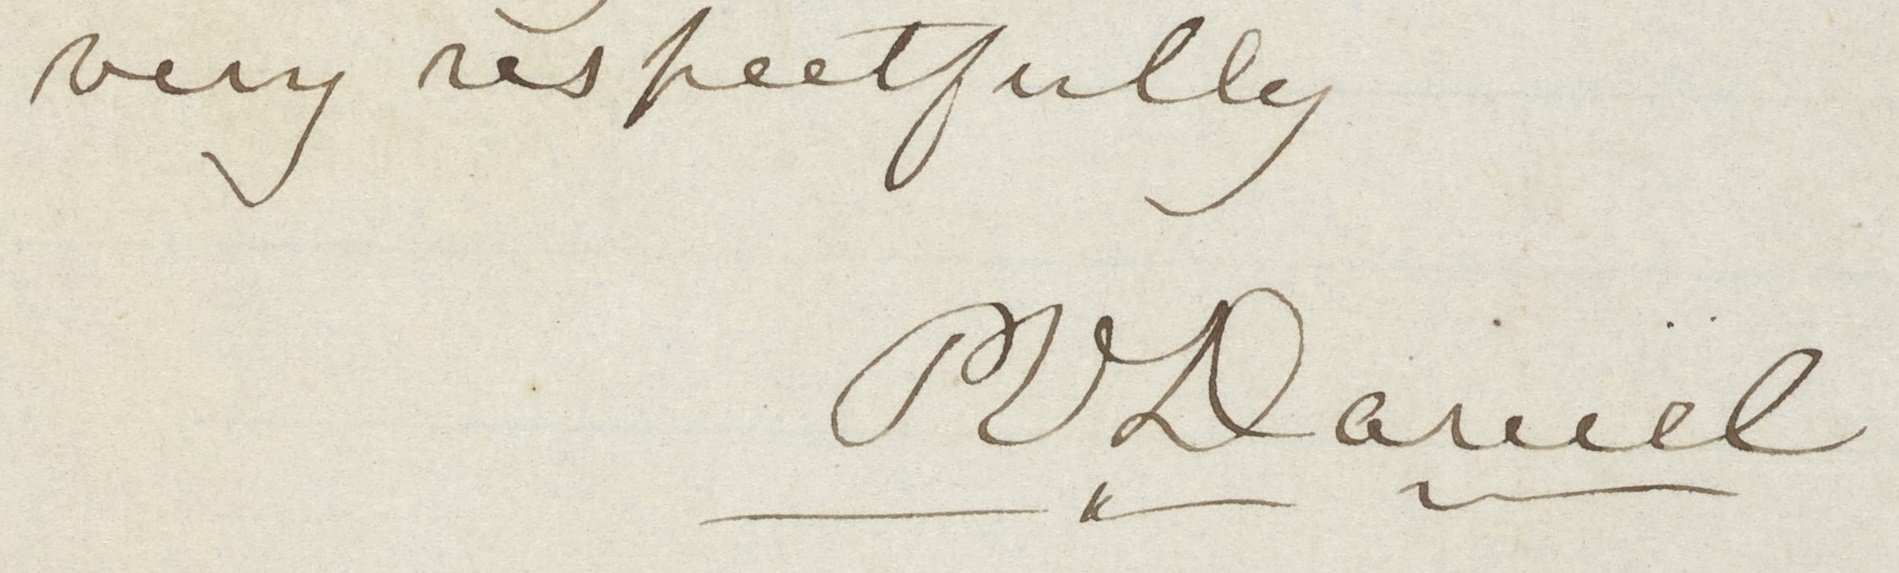 very respectfully
P V Daniel